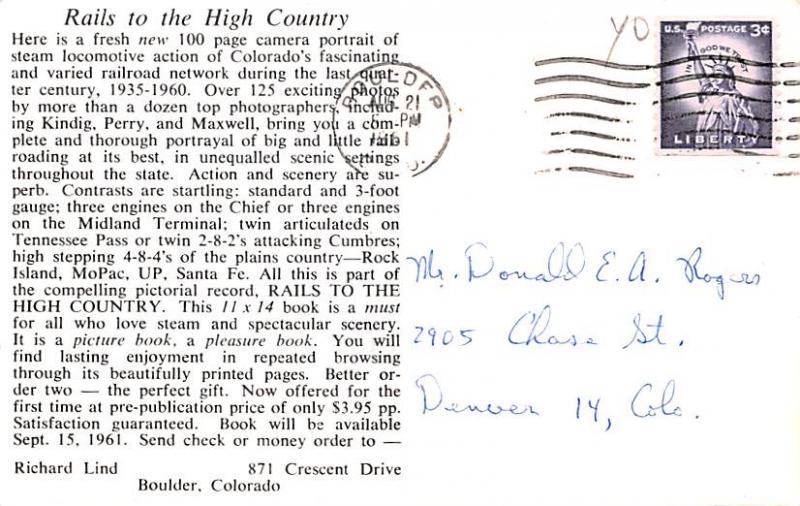 Rails to the High Country
Here is a fresh new 100 page camera portrait of
steam locomotive action of Colorado's fascinating
and varied railroad network during the last quar-
ter century, 1935-1960. Over 125 exciting photos
by more than a dozen top photographers, includ-
ing Kindig, Perry, and Maxwell, bring you a com-
plete and thorough portrayal of big and little rail-
roading at its best, in unequalled scenic settings
throughout the state. Action and scenery are su-
perb. Contrasts are startling: standard and 3-foot
gauge; three engines on the Chief or three engines
on the Midland Terminal; twin articulateds on
Tennessee Pass or twin 2-8-2's attacking Cumbres;
high stepping 4-8-4's of the plains country—Rock
Island, MoPac, UP, Santa Fe. All this is part of
the compelling pictorial record, RAILS TO THE
HIGH COUNTRY. This 11 x 14 book is a must
for all who love steam and spectacular scenery.
It is a picture book, a pleasure book. You will
find lasting enjoyment in repeated browsing
through its beautifully printed pages. Better or-
der two — the perfect gift. Now offered for the
first time at pre-publication price of only $3.95 pp.
Satisfaction guaranteed. Book will be available
Sept. 15, 1961. Send check or money order to —
Richard Lind 871 Crescent Drive
Boulder, Colorado
AUG 21
PM
1961
YO
U.S. POSTAGE 3¢
IN GOD WE TRUST
LIBERTY
Mr. Donald E. A. Rogers
2905 Chase St.
Denver 14, Colo.